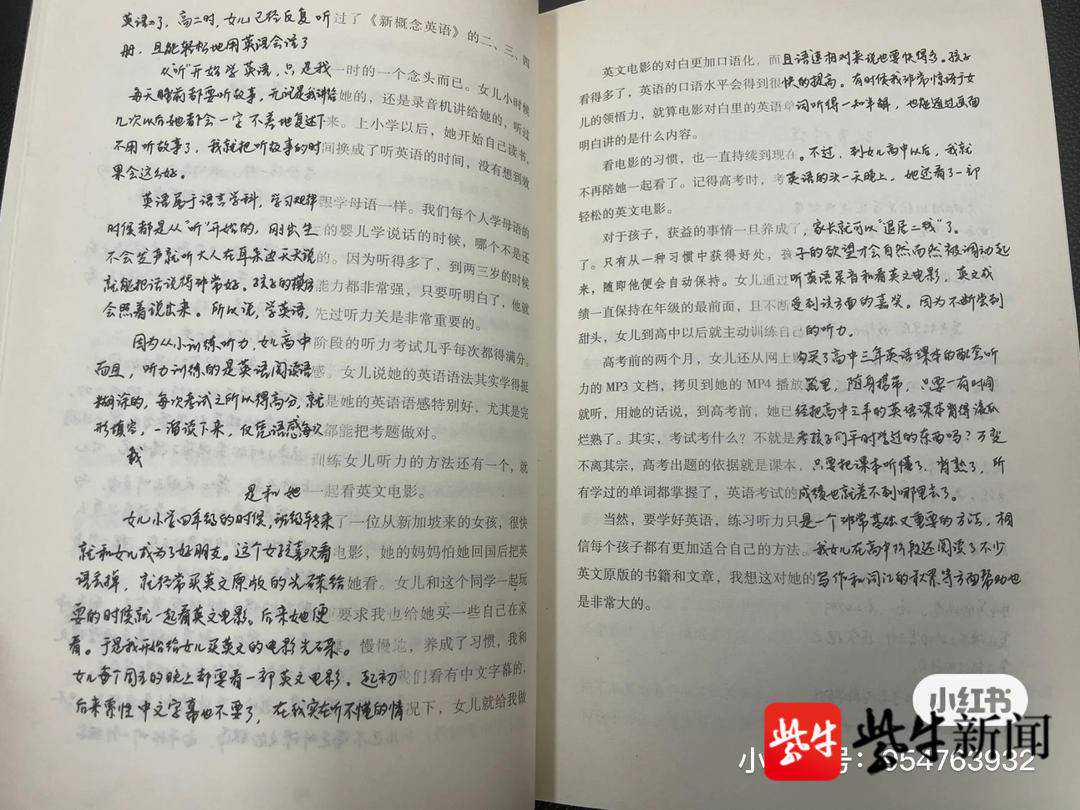 英语了，高二时，女儿已经反复听过了《新概念英语》的二、三、四
册，且能轻松地用英语会话了
从"听"开始学英语，只是我一时的一个念头而已。女儿小时候
每天睡前都要听故事，无论是我讲给她的，还是录音机讲给她的，听过
几次以后她都会一字不差地复述下来。上小学以后，她开始自己读书，
不用听故事了，我就把听故事的时间换成了听英语的时间，没有想到效
果会这么好。
英语属于语言学科，学习规律跟学母语一样。我们每个人学母语的
时候都是从"听"开始的，刚出生的婴儿学说话的时候，哪个不是还
不会发声就听大人在耳朵边天天说的。因为听得多了，到两三岁的时候
就能把话说得非常好。孩子的模仿能力都非常强，只要听明白了，他就
会照着说出来。所以说，学英语，先过听力关是非常重要的。
因为从小训练听力，女儿高中阶段的听力考试几乎每次都得满分。
而且，听力训练的是英语阅读语感。女儿说她的英语语法其实学得挺
糊涂的，每次考试之所以得高分，就是她的英语语感特别好，尤其是完
形填空，一溜读下来，仅凭语感每次都能把考题做对。
我训练女儿听力的方法还有一个，就
是和她一起看英文电影。
女儿小学四年级的时候，班级转来了一位从新加坡来的女孩，很快
就和女儿成为了好朋友。这个女孩喜欢看电影，她的妈妈怕她回国后把英
语丢掉，就经常买英文原版的光碟给她看。女儿和这个同学一起玩
耍的时候就一起看英文电影。后来她便要求我也给她买一些自己在家
看。于是我开始给女儿买英文的电影光碟。慢慢地，养成了习惯，我和
女儿每个周末的晚上都要看一部英文电影。起初我们看有中文字幕的，
后来索性中文字幕也不要了，在我实在听不懂的情况下，女儿就给我做
英文电影的对白更加口语化，而且语速相对来说也要快得多。孩子
看得多了，英语的口语水平会得到很快的提高。有时候我非常惊讶于女
儿的领悟力，就算电影对白里的英语单词听得一知半解，也能通过画面
明白讲的是什么内容。
看电影的习惯，也一直持续到现在。不过，到女儿高中以后，我就
不再陪她一起看了。记得高考时，考英语的头一天晚上，她还看了一部
轻松的英文电影。
对于孩子，获益的事情一旦养成了，家长就可以"退居二线"了
了。只有从一种习惯中获得好处，孩子的欲望才会自然而然被调动起
来，随即他便会自动保持。女儿通过听英语录音和看英文电影，英文成
绩一直保持在年级的最前面，且不断受到该方面的嘉奖。因为不断尝到
甜头，女儿到高中以后就主动训练自己的听力。
高考前的两个月，女儿还从网上购买了高中三年英语课本的配套听
力的MP3文档，拷贝到她的MP4播放器里，随身携带，只要一有时间
就听，用她的话说，到高考前，她已经把高中三年的英语课本背得滚瓜
烂熟了。其实，考试考什么？不就是考孩子们平时学过的东西吗？万变
不离其宗，高考出题的依据就是课本，只要把课本听懂了、背熟了，所
有学过的单词都掌握了，英语考试的成绩也就差不到哪里去了。
当然，要学好英语，练习听力只是一个非常基础又重要的方法，相
信每个孩子都有更加适合自己的方法。我女儿在高中阶段还阅读了不少
英文原版的书籍和文章，我想这对她的写作和词汇的积累等方面帮助也
是非常大的。
小红书
紫牛 紫牛新闻
小 号：954763932